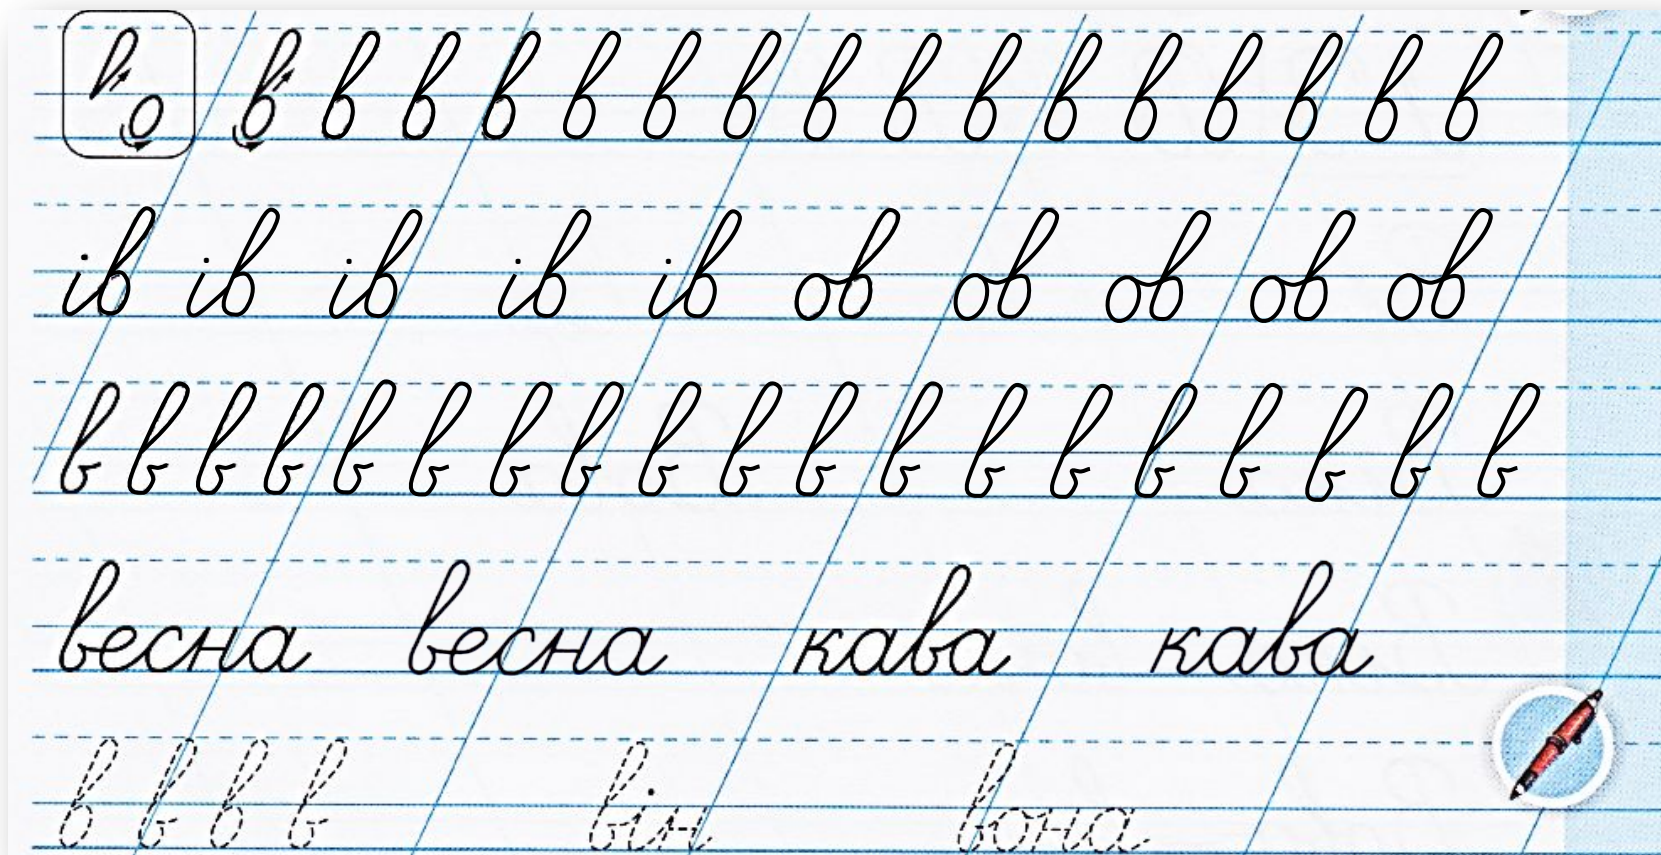 в в в в в в в в в в в в в в в в
ів ів ів ів ів ов ов ов ов ов
в в в в в в в в в в в в в в в в в в в
весна весна кава кава
в в в в він вона